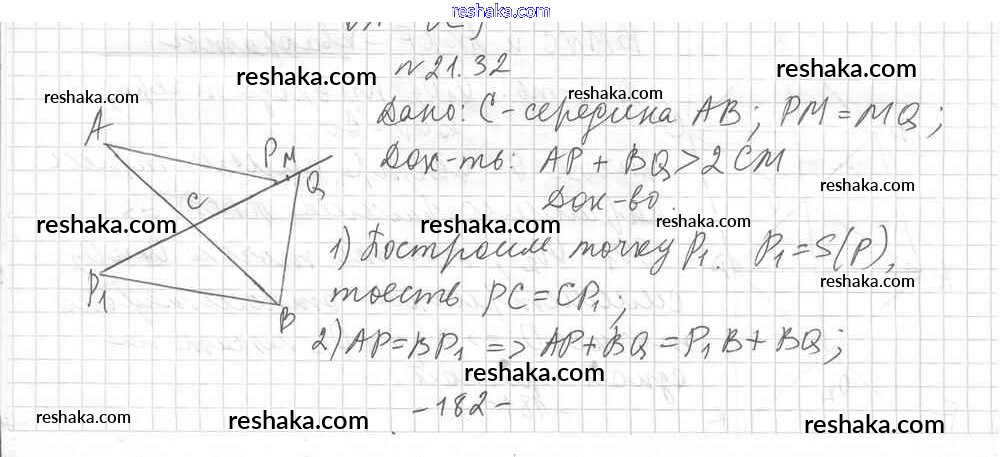 reshaka.com
№ 21.32
reshaka.com
reshaka.com
reshaka.com
Дано: C - середина AB; PM = MQ;
A
P M
Q
C
P₁
B
Док-ть: AP + BQ > 2 CM
reshaka.com
Док-во.
reshaka.com
reshaka.com
reshaka.com
1) Построим точку P₁. P₁ = S(P),
reshaka.com
тоесть PC = CP₁;
2) AP = BP₁ => AP + BQ = P₁B + BQ;
reshaka.com
- 182 -
reshaka.com
reshaka.com
reshaka.com
reshaka.com